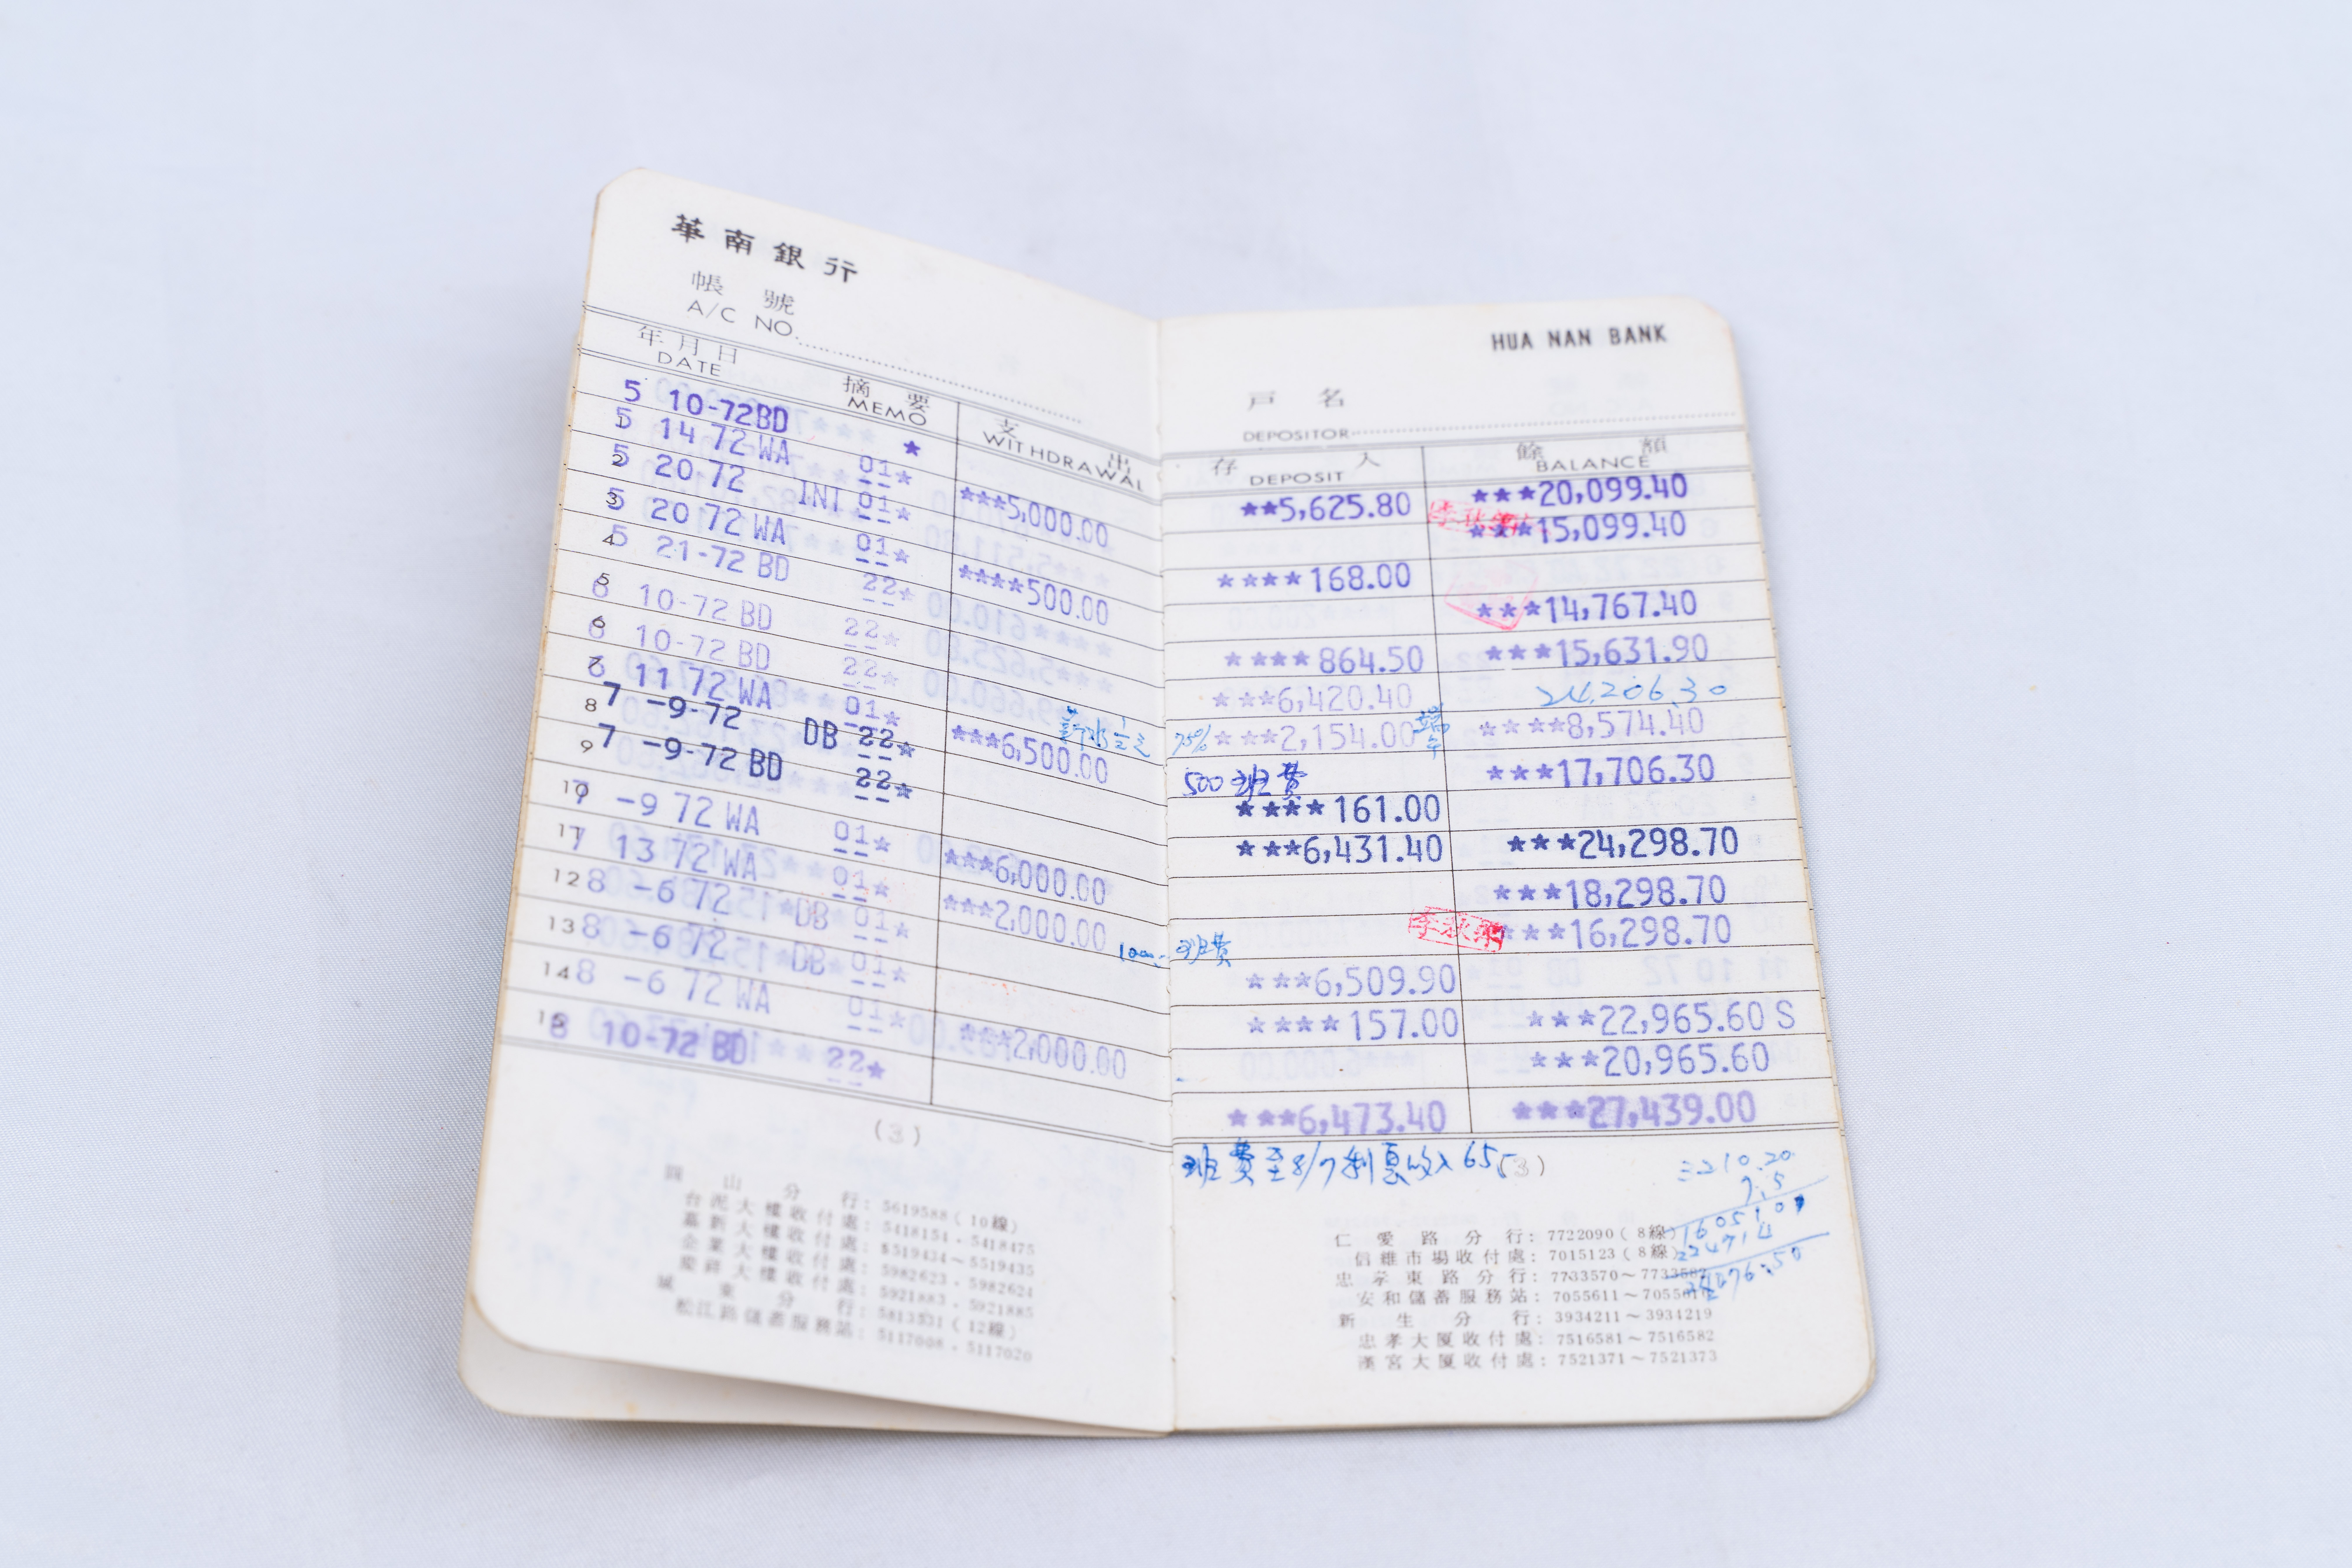 華南銀行
帳號
A/C NO.
年月日
DATE
摘要
MEMO
支出
WITHDRAWAL
5 10-72BD *
1 5 14 72 WA 01* ***5,000.00
2 5 20-72 INT 01*
3 5 20 72 WA 01* ****500.00
4 5 21-72 BD 22*
5 6 10-72 BD 22*
6 6 10-72 BD 22*
7 6 11 72 WA 01* ***6,500.00
薪水
8 7 -9-72 DB 22*
9 7 -9-72 BD 22*
10 7 -9 72 WA 01* ***6,000.00
11 7 13 72 WA 01* ***2,000.00
12 8 -6 72 DB 01*
13 8 -6 72 DB 01*
14 8 -6 72 WA 01* ***2,000.00
15 8 10-72 BD 22*
(3)
圓山分行:5619588(10線)
台泥大樓收付處:5418154.5418475
嘉新大樓收付處:5519434~5519435
企業大樓收付處:5982623.5982624
慶祥大樓收付處:5921883.5921885
城東分行:5813531(12線)
松江路儲蓄服務站:5117008.5117020
HUA NAN BANK
戶名
DEPOSITOR
存入
DEPOSIT
餘額
BALANCE
**5,625.80 ***20,099.40
***15,099.40
****168.00
***14,767.40
****864.50 ***15,631.90
***6,420.40 24,206.30
75% ***2,154.00 端午 ****8,574.40
500班費 ***17,706.30
****161.00
***6,431.40 ***24,298.70
***18,298.70
李秋 ***16,298.70
1000 班費
***6,509.90
****157.00 ***22,965.60 S
***20,965.60
***6,473.40 ***27,439.00
班費至8/7利息收入65-
(3)
210.20
7.5
仁愛路分行:7722090(8線)
信維市場收付處:7015123(8線)
忠孝東路分行:7733570~7733582
安和儲蓄服務站:7055611~
新生分行:3934211~3934219
忠孝大厦收付處:7516581~7516582
漢宮大厦收付處:7521371~7521373